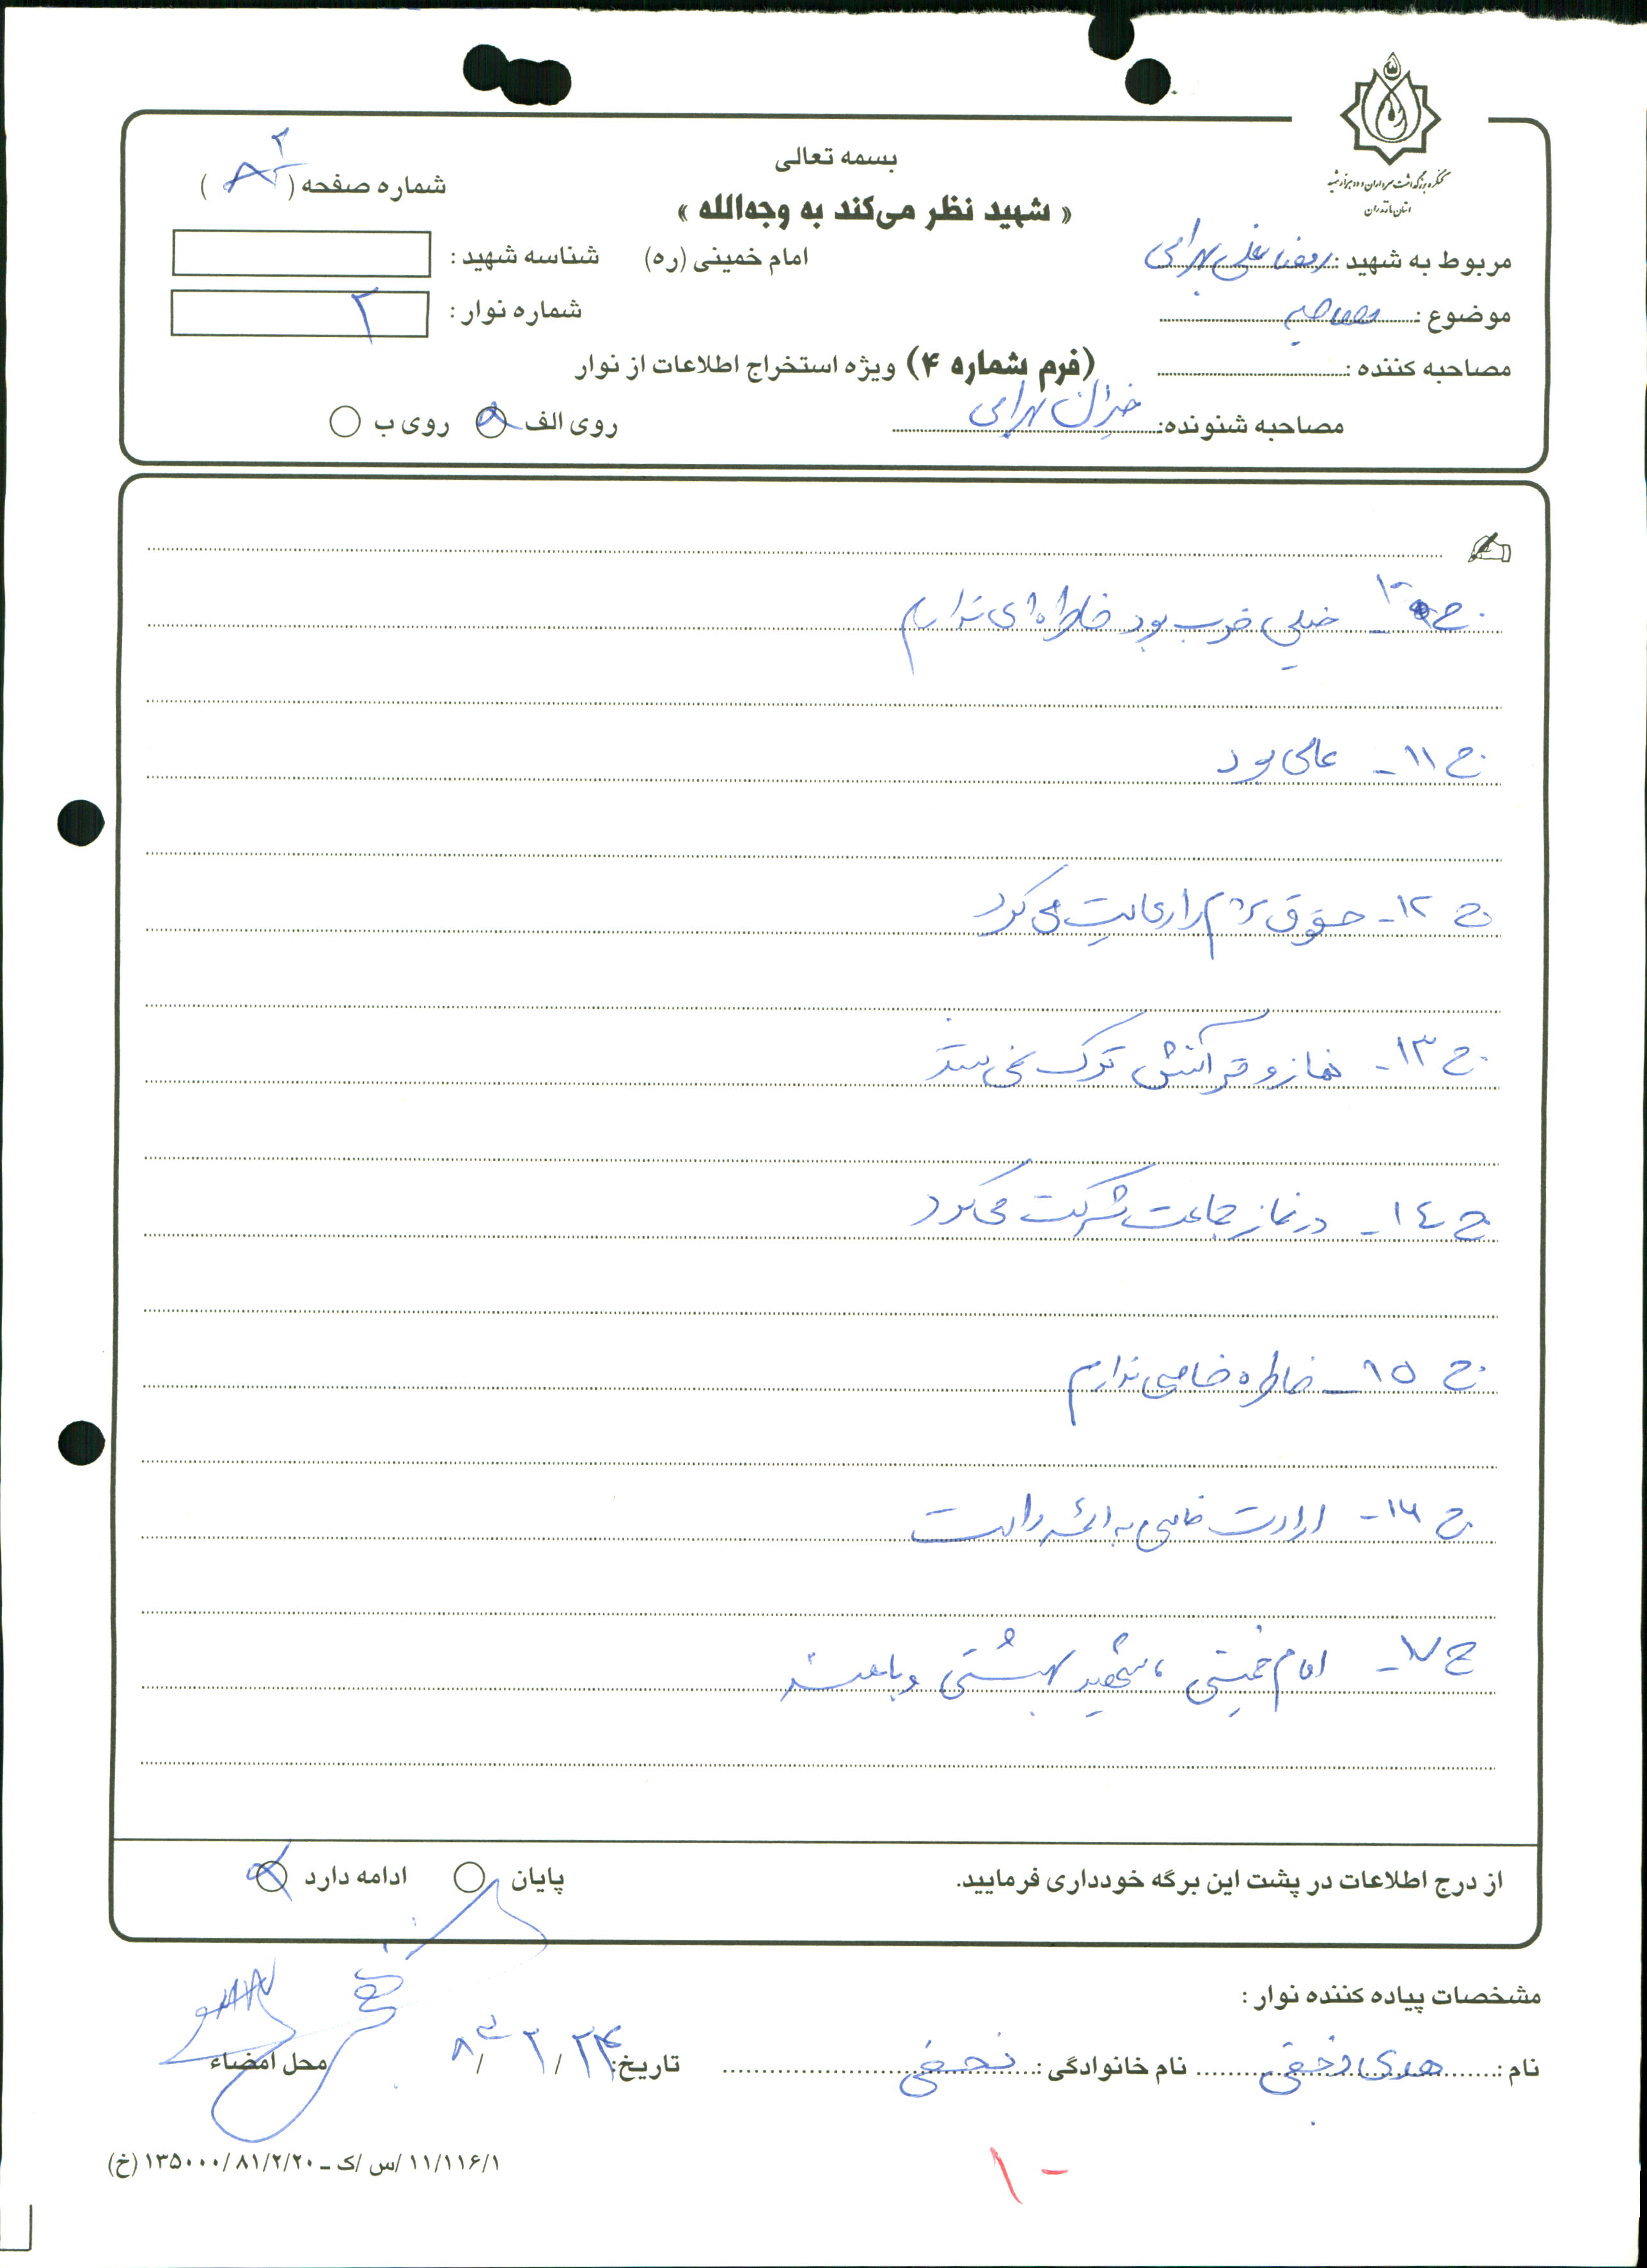 بسمه تعالی
« شهید نظر می‌کند به وجه‌الله »
امام خمینی (ره)
کنگره بزرگداشت سرداران و ده هزار شهید
استان مازندران
شماره صفحه ( ۲ )
مربوط به شهید : رمضانعلی بهرامی
شناسه شهید :
موضوع : مصاحبه
شماره نوار : ۲
مصاحبه کننده :
(فرم شماره ۴) ویژه استخراج اطلاعات از نوار
مصاحبه شنونده: بهرامی
روی الف روی ب
ج ۱۰- خیلی خوب بود خاطره ای ندارم
ج ۱۱- عالی بود
ج ۱۲- حقوق مردم را رعایت می کرد
ج ۱۳- نماز و قرآنش ترک نمی شد
ج ۱٤- در نماز جماعت شرکت می کرد
ج ۱۵- خاطره خاصی ندارم
ج ۱۶- ارادت خاصی به ائمه داشت
ج ۱۷- امام خمینی ، شهید بهشتی و
از درج اطلاعات در پشت این برگه خودداری فرمایید.
پایان ادامه دارد
مشخصات پیاده کننده نوار :
نام : هدی نجفی نام خانوادگی : نجفی تاریخ: ۲۴ / ۲ / ۸۳ محل امضاء
۱۱/۱۱۶/۱ /س /ک ـ ۱۳۵۰۰۰/۸۱/۲/۲۰ (خ)
۱۰